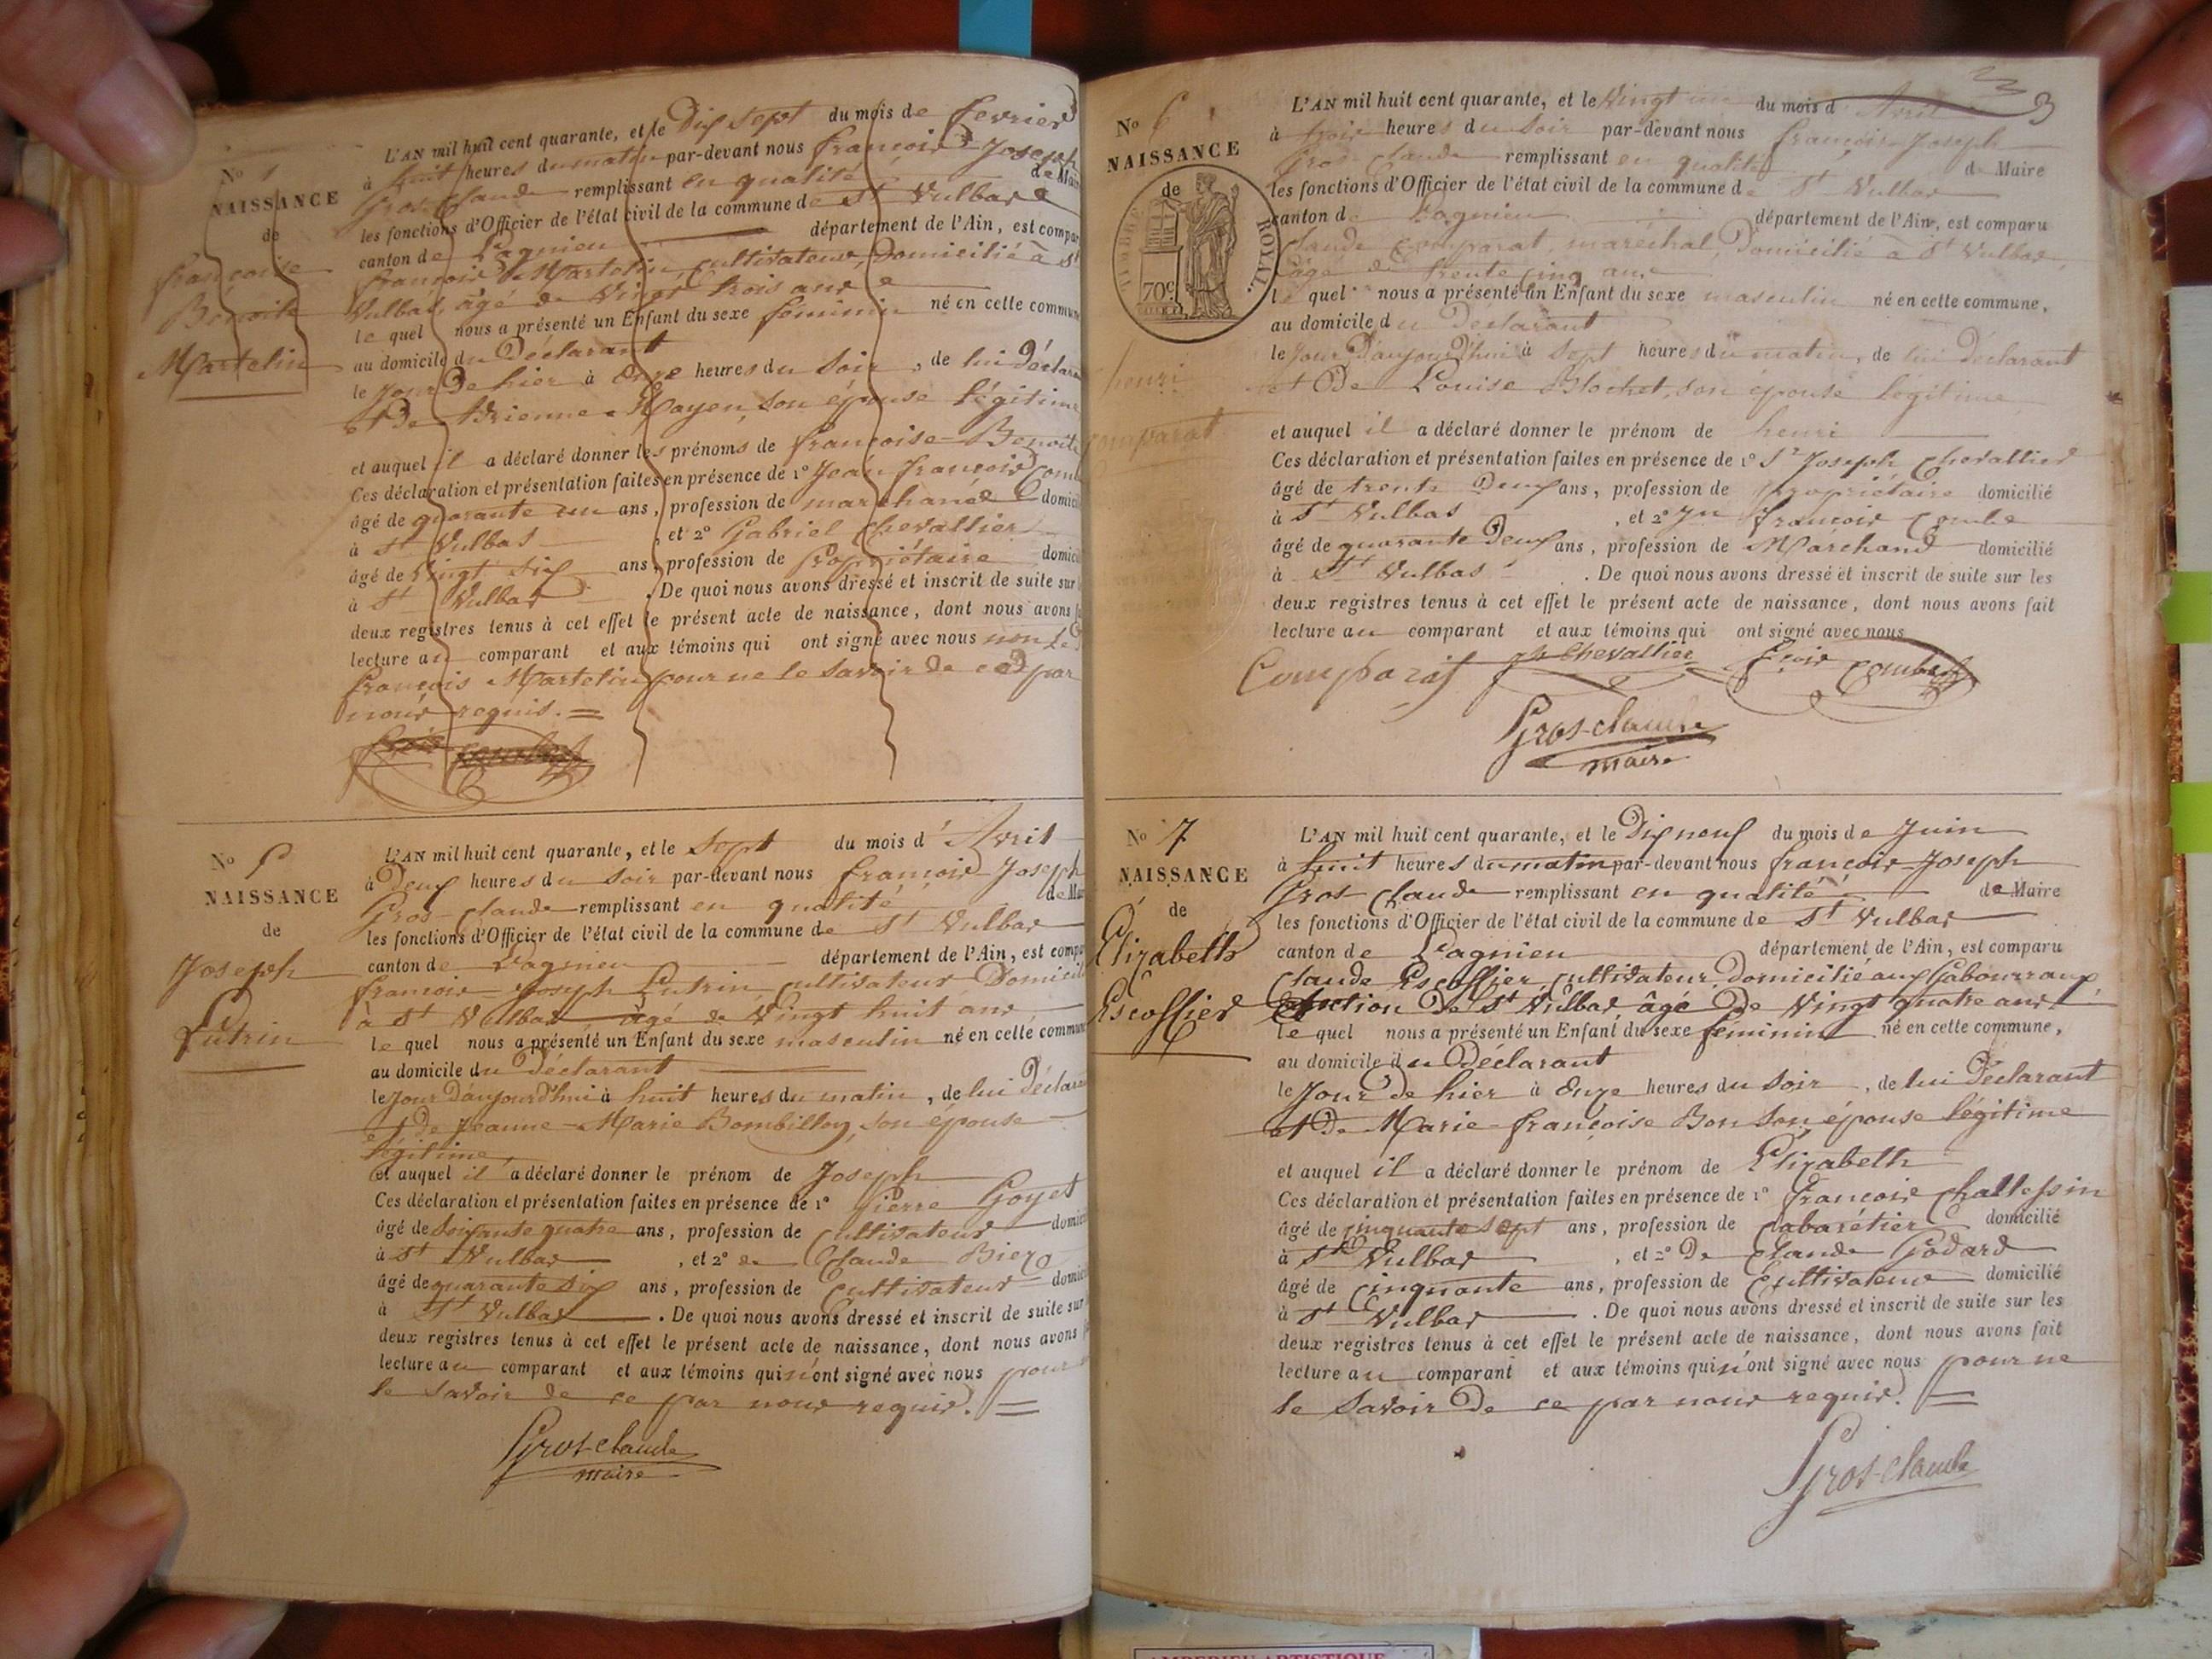 N° 1
NAISSANCE
de
françoise
Benoite
Martelin
L'AN mil huit cent quarante, et le Dix sept du mois de fevrier
à huit heures du matin par-devant nous françois Joseph
Gros-Claude remplissant en qualité de Mai
les fonctions d'Officier de l'état civil de la commune de St Vulbas
canton de Lagnieu département de l'Ain, est compar
françois Martelin, cultivateur, Domicilié à St
Vulbas, âgé de Vingt trois ans
le quel nous a présenté un Enfant du sexe féminin né en cette commun
au domicile du Déclarant
le jour De hier à Onze heures du soir, de lui déclara
et De Adrienne Mayen, son épouse légitime
et auquel il a déclaré donner les prénoms de françoise-Benoite
Ces déclaration et présentation faites en présence de 1° Jean françois Com
âgé de quarante un ans, profession de marchand domici
à St Vulbas, et 2° Gabriel Chevallier
âgé de Vingt Six ans, profession de Propriétaire domici
à St Vulbas. De quoi nous avons dressé et inscrit de suite sur l
deux registres tenus à cet effet le présent acte de naissance, dont nous avons fa
lecture au comparant et aux témoins qui ont signé avec nous non le
françois Martelin pour ne le savoir de ce par
nous requis.
fçois Combe
N° 5
NAISSANCE
de
Joseph
Lutrin
L'AN mil huit cent quarante, et le Sept du mois d'Avril
à Deux heures du Soir par-devant nous françois Joseph
Gros-Claude remplissant en qualité de Mai
les fonctions d'Officier de l'état civil de la commune de St Vulbas
canton de Lagnieu département de l'Ain, est compa
françois-Joseph Lutrin cultivateur Domicil
à St Vulbas âgé de Vingt huit ans
le quel nous a présenté un Enfant du sexe masculin né en cette commun
au domicile du Déclarant
le jour D'aujourd'hui à huit heures du matin, de lui Déclara
et de Jeanne-Marie Bombilloy, son épouse
légitime
et auquel il a déclaré donner le prénom de Joseph
Ces déclaration et présentation faites en présence de 1° Pierre Goyet
âgé de soixante quatre ans, profession de Cultivateur domic
à St Vulbas, et 2° de Claude Biezo
âgé de quarante six ans, profession de cultivateur domic
à St Vulbas. De quoi nous avons dressé et inscrit de suite sur
deux registres tenus à cet effet le présent acte de naissance, dont nous avons
lecture au comparant et aux témoins qui n'ont signé avec nous pour
le savoir de ce par nous requis.
Gros-claude
maire
3
N° 6
NAISSANCE
de
TIMBRE ROYAL.
70c
henri
Comparat
L'AN mil huit cent quarante, et le Vingt un du mois d Avril
à trois heures du Soir par-devant nous françois-Joseph
Gros-Claude remplissant en qualité de Maire
les fonctions d'Officier de l'état civil de la commune de St Vulbas
canton de Lagnieu département de l'Ain, est comparu
Claude Comparat, maréchal, Domicilié à St Vulbas,
âgé de trente cinq ans
le quel nous a présenté un Enfant du sexe masculin né en cette commune,
au domicile du Déclarant
le Jour D'aujourd'hui à sept heures du matin, de lui Déclarant
et De Louise Blochet, son épouse légitime
et auquel il a déclaré donner le prénom de henri
Ces déclaration et présentation faites en présence de 1° Sr Joseph Chevallier
âgé de trente Deux ans, profession de propriétaire domicilié
à St Vulbas, et 2° Jn françois Combe
âgé de quarante Deux ans, profession de Marchand domicilié
à St Vulbas. De quoi nous avons dressé et inscrit de suite sur les
deux registres tenus à cet effet le présent acte de naissance, dont nous avons fait
lecture au comparant et aux témoins qui ont signé avec nous
Comparat Jh Chevallier fçois Combe
Gros-claude
maire
N° 7
NAISSANCE
de
Elizabeth
Escoffier
L'AN mil huit cent quarante, et le Dix neuf du mois de Juin
à huit heures du matin par-devant nous françois-Joseph
Gros-Claude remplissant en qualité de Maire
les fonctions d'Officier de l'état civil de la commune de St Vulbas
canton de Lagnieu département de l'Ain, est comparu
Claude Escoffier, cultivateur, domicilié aux Gabourraux
Section De St Vulbas, âgé De Vingt quatre ans
le quel nous a présenté un Enfant du sexe féminin né en cette commune,
au domicile du Déclarant
le Jour de hier à Onze heures du Soir, de lui Déclarant
et De Marie-françoise Bon son épouse légitime
et auquel il a déclaré donner le prénom de Elizabeth
Ces déclaration et présentation faites en présence de 1° françois Challessin
âgé de cinquante sept ans, profession de Cabarétier domicilié
à St Vulbas, et 2° De Claude Godard
âgé de Cinquante ans, profession de Cultivateur domicilié
à St Vulbas. De quoi nous avons dressé et inscrit de suite sur les
deux registres tenus à cet effet le présent acte de naissance, dont nous avons fait
lecture au comparant et aux témoins qui n'ont signé avec nous pour ne
le savoir De ce par nous requis.
Gros-claude
AMBERIEU ARTISTIQUE